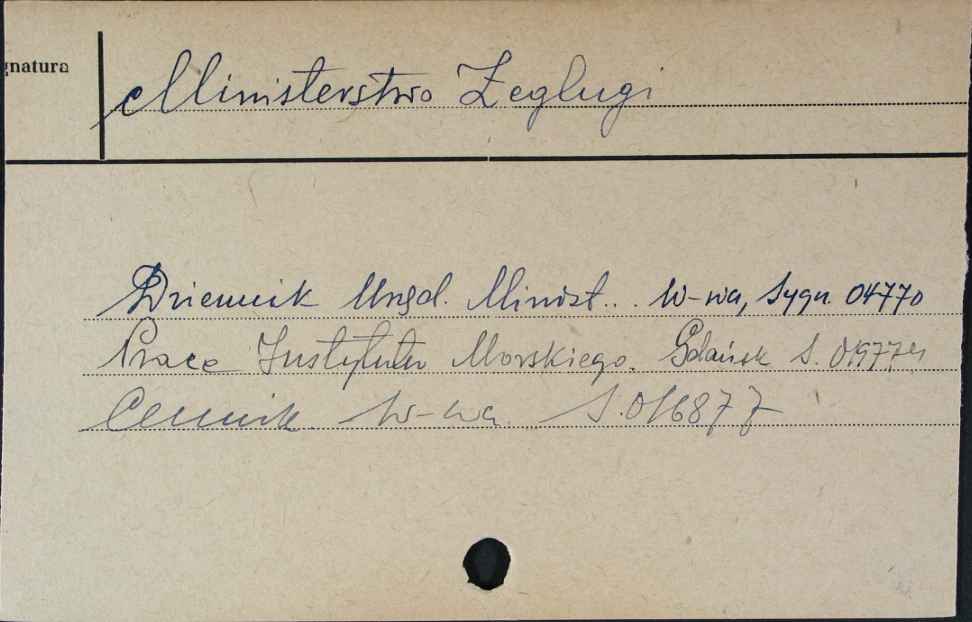 gnatura
Ministerstwo Żeglugi
Dziennik Urzęd. Minist.. W-wa, Sygn. 04770
Prace Instytutu Morskiego. Gdańsk S.
Cennik. W-wa. S. 016877